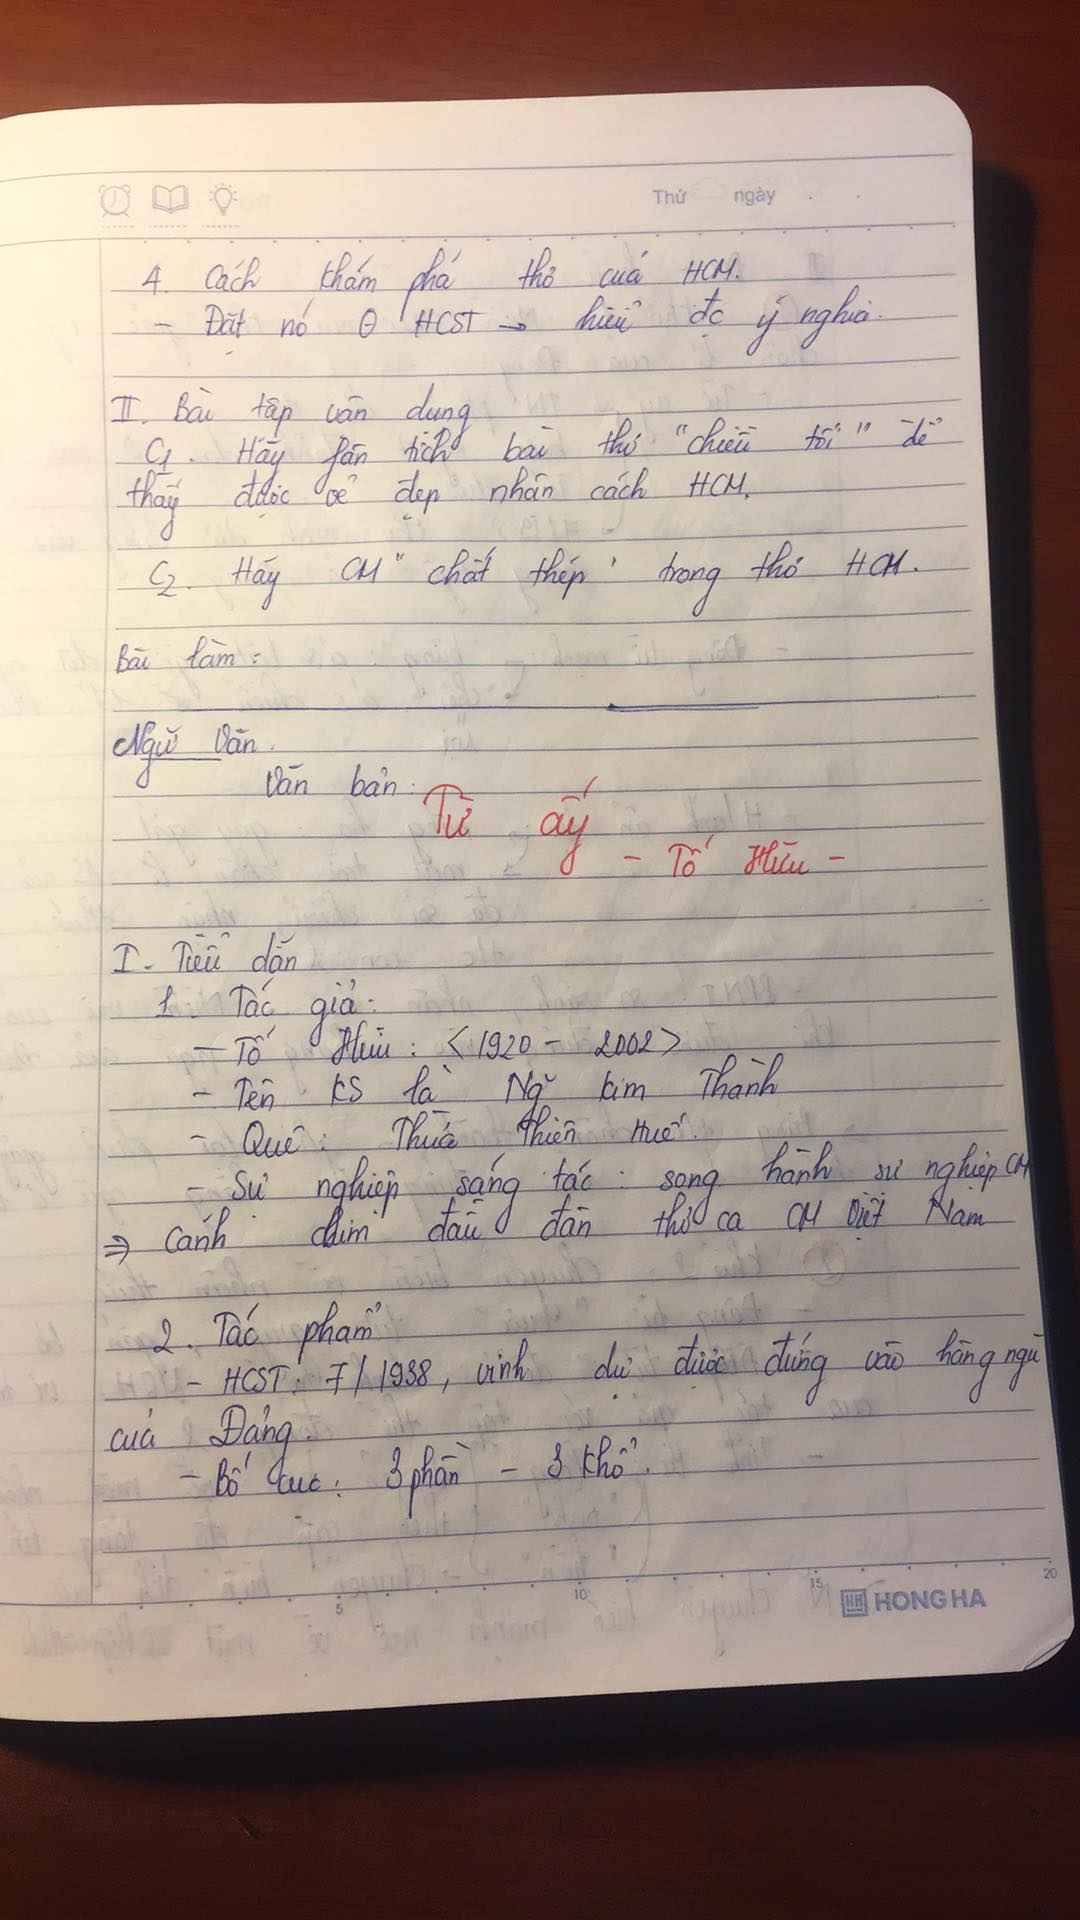 Thứ ngày
4. Cách khám phá thơ của HCM.
- Đặt nó Θ HCST → hiểu đc ý nghĩa.
II. Bài tập vận dụng
C1. Hãy fân tích bài thơ "chiều tối" để
thấy được vẻ đẹp nhân cách HCM.
C2. Hãy CM "chất thép" trong thơ HCM.
Bài làm:
Ngữ Văn.
Văn bản:
Từ ấy
- Tố Hữu -
I. Tiểu dẫn
1. Tác giả:
- Tố Hữu: <1920 - 2002>
- Tên KS là Ng~ Kim Thành
- Quê: Thừa Thiên Huế.
- Sự nghiệp sáng tác: song hành sự nghiệp CM
⇒ Cánh chim đầu đàn thơ ca CM Việt Nam
2. Tác phẩm
- HCST: 7/1938, vinh dự được đứng vào hàng ngũ
của Đảng.
- Bố cục: 3 phần - 3 khổ.
5 10 15 20
HONG HA